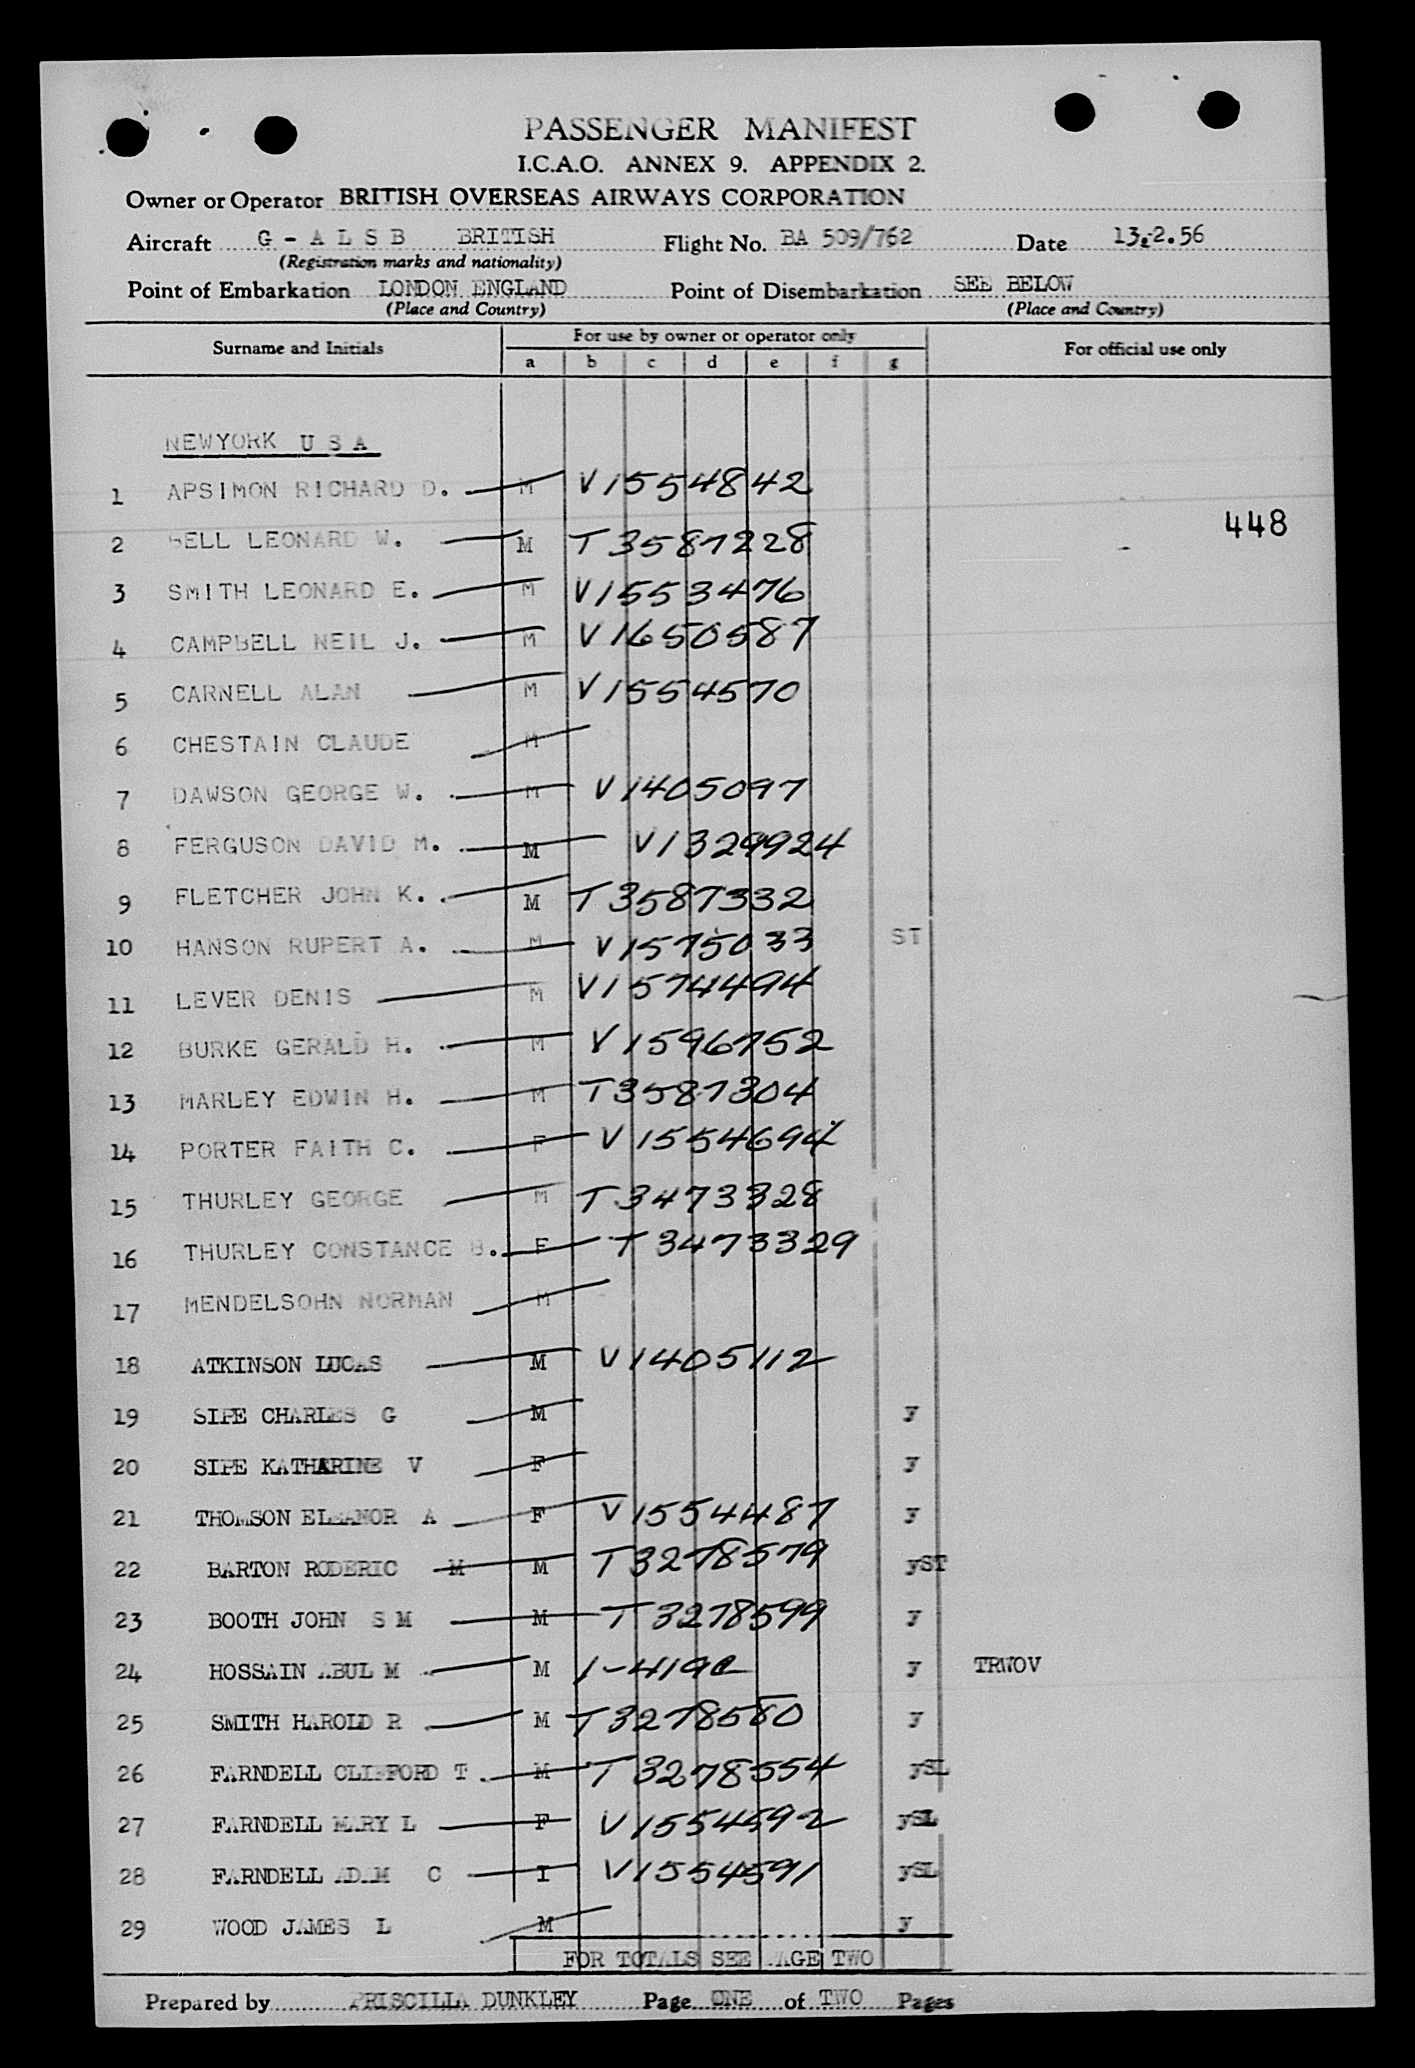 PASSENGER MANIFEST
I.C.A.O. ANNEX 9. APPENDIX 2.
Owner or Operator BRITISH OVERSEAS AIRWAYS CORPORATION
Aircraft G - A L S B BRITISH Flight No. BA 509/762 Date 13.2.56
(Registration marks and nationality)
Point of Embarkation LONDON ENGLAND Point of Disembarkation SEE BELOW
(Place and Country) (Place and Country)
Surname and Initials For use by owner or operator only For official use only
a b c d e f g
NEWYORK U S A
1 APSIMON RICHARD D. M V1554842
448
2 BELL LEONARD W. M T3587228
3 SMITH LEONARD E. M V1553476
4 CAMPBELL NEIL J. M V1650587
5 CARNELL ALAN M V1554570
6 CHESTAIN CLAUDE M
7 DAWSON GEORGE W. M V1405097
8 FERGUSON DAVID M. M V1329924
9 FLETCHER JOHN K. M T3587332
10 HANSON RUPERT A. M V1575033 ST
11 LEVER DENIS M V1574494
12 BURKE GERALD H. M V1596752
13 MARLEY EDWIN H. M T3587304
14 PORTER FAITH C. F V1554694
15 THURLEY GEORGE M T3473328
16 THURLEY CONSTANCE B. F T3473329
17 MENDELSOHN NORMAN M
18 ATKINSON LUCAS M V1405112
19 SIPE CHARLES G M y
20 SIPE KATHARINE V F y
21 THOMSON ELEANOR A F V1554487 y
22 BARTON RODERIC M M T3278579 yST
23 BOOTH JOHN S M M T3278599 y
24 HOSSAIN ABUL M M 1-419 y TRWOV
25 SMITH HAROLD R M T3278580 y
26 FARNDELL CLIFFORD T M T3278554 ySL
27 FARNDELL MARY L F V1554592 ySL
28 FARNDELL ADAM C I V1554591 ySL
29 WOOD JAMES L M y
FOR TOTALS SEE PAGE TWO
Prepared by PRISCILLA DUNKLEY Page ONE of TWO Pages